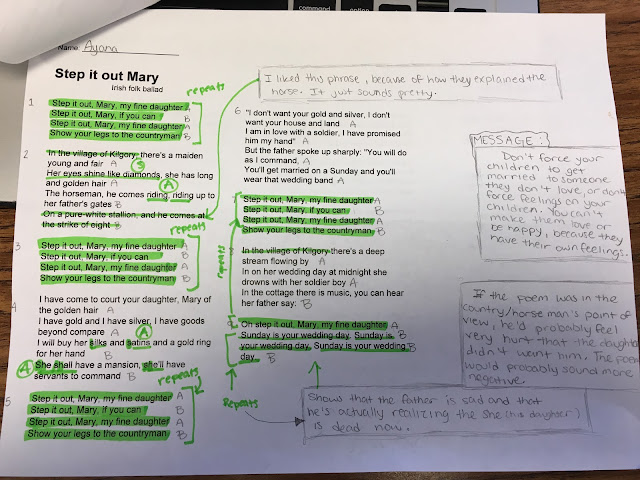 command
option
Name: Ayana
Step it out Mary
Irish folk ballad
repeats
1
Step it out, Mary, my fine daughter A
Step it out, Mary, if you can B
Step it out, Mary, my fine daughter A
Show your legs to the countryman B
2
In the village of Kilgory there's a maiden
young and fair A
S
Her eyes shine like diamonds, she has long
and golden hair A
A
The horseman, he comes riding, riding up to
her father's gates B
On a pure white stallion, and he comes at
the strike of eight B
repeats
3
Step it out, Mary, my fine daughter A
Step it out, Mary, if you can B
Step it out, Mary, my fine daughter A
Show your legs to the countryman B
4
I have come to court your daughter, Mary of
the golden hair A
I have gold and I have silver, I have goods
beyond compare A
A
I will buy her silks and satins and a gold ring
for her hand B
A
She shall have a mansion, she'll have
servants to command B
repeats
5
Step it out, Mary, my fine daughter A
Step it out, Mary, if you can B
Step it out, Mary, my fine daughter A
Show your legs to the countryman B
I liked this phrase, because of how they explained the
horse. It just sounds pretty.
6
"I don't want your gold and silver, I don't
want your house and land A
I am in love with a soldier, I have promised
him my hand" A
But the father spoke up sharply: "You will do
as I command, A
You'll get married on a Sunday and you'll
wear that wedding band A
7
Step it out, Mary, my fine daughter A
Step it out, Mary, if you can B
Step it out, Mary, my fine daughter A
Show your legs to the countryman B
repeats
In the village of Kilgory there's a deep
stream flowing by A
In on her wedding day at midnight she
drowns with her soldier boy A
In the cottage there is music, you can hear
her father say: B
Oh step it out, Mary, my fine daughter A
Sunday is your wedding day. Sunday is
your wedding day, Sunday is your wedding B
day. B
Repeats
Shows that the father is sad and that
he's actually realizing the she (his daughter)
is dead now.
MESSAGE:
Don't force your
children to get
married to someone
they don't love, or don't
force feelings on your
children. You can't
make them love or
be happy, because they
have their own feelings.
If the poem was in the
country/horse man's point of
view, he'd probably feel
very hurt that the daughter
didn't want him. The poem
would probably sound more
negative.